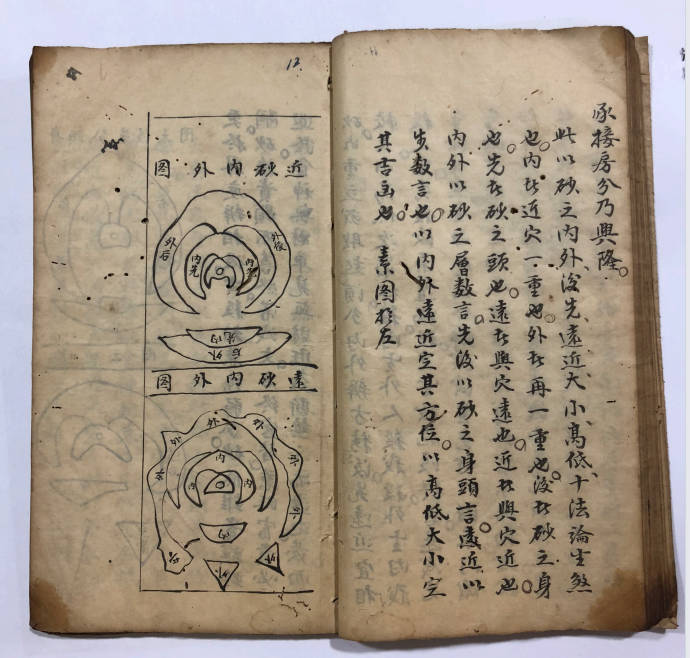 承接房分乃興隆。
此以砂之內外後先遠近大小高低十法論生煞
也。內者近穴一重也。外者再一重也。後者砂之身
也。先者砂之頭也。遠者與穴遠也。近者與穴近也。
內外以砂之層數言。先後以砂之身頭言。遠近以
步数言也。以內外遠近定其方位。以高低大小定
其吉凶也。 图於左
12.
近砂內外图
外后
外後
內先
內先
內先
后外
遠砂內外图
外
外
外
外
外
外
內
內
內
內
外
外